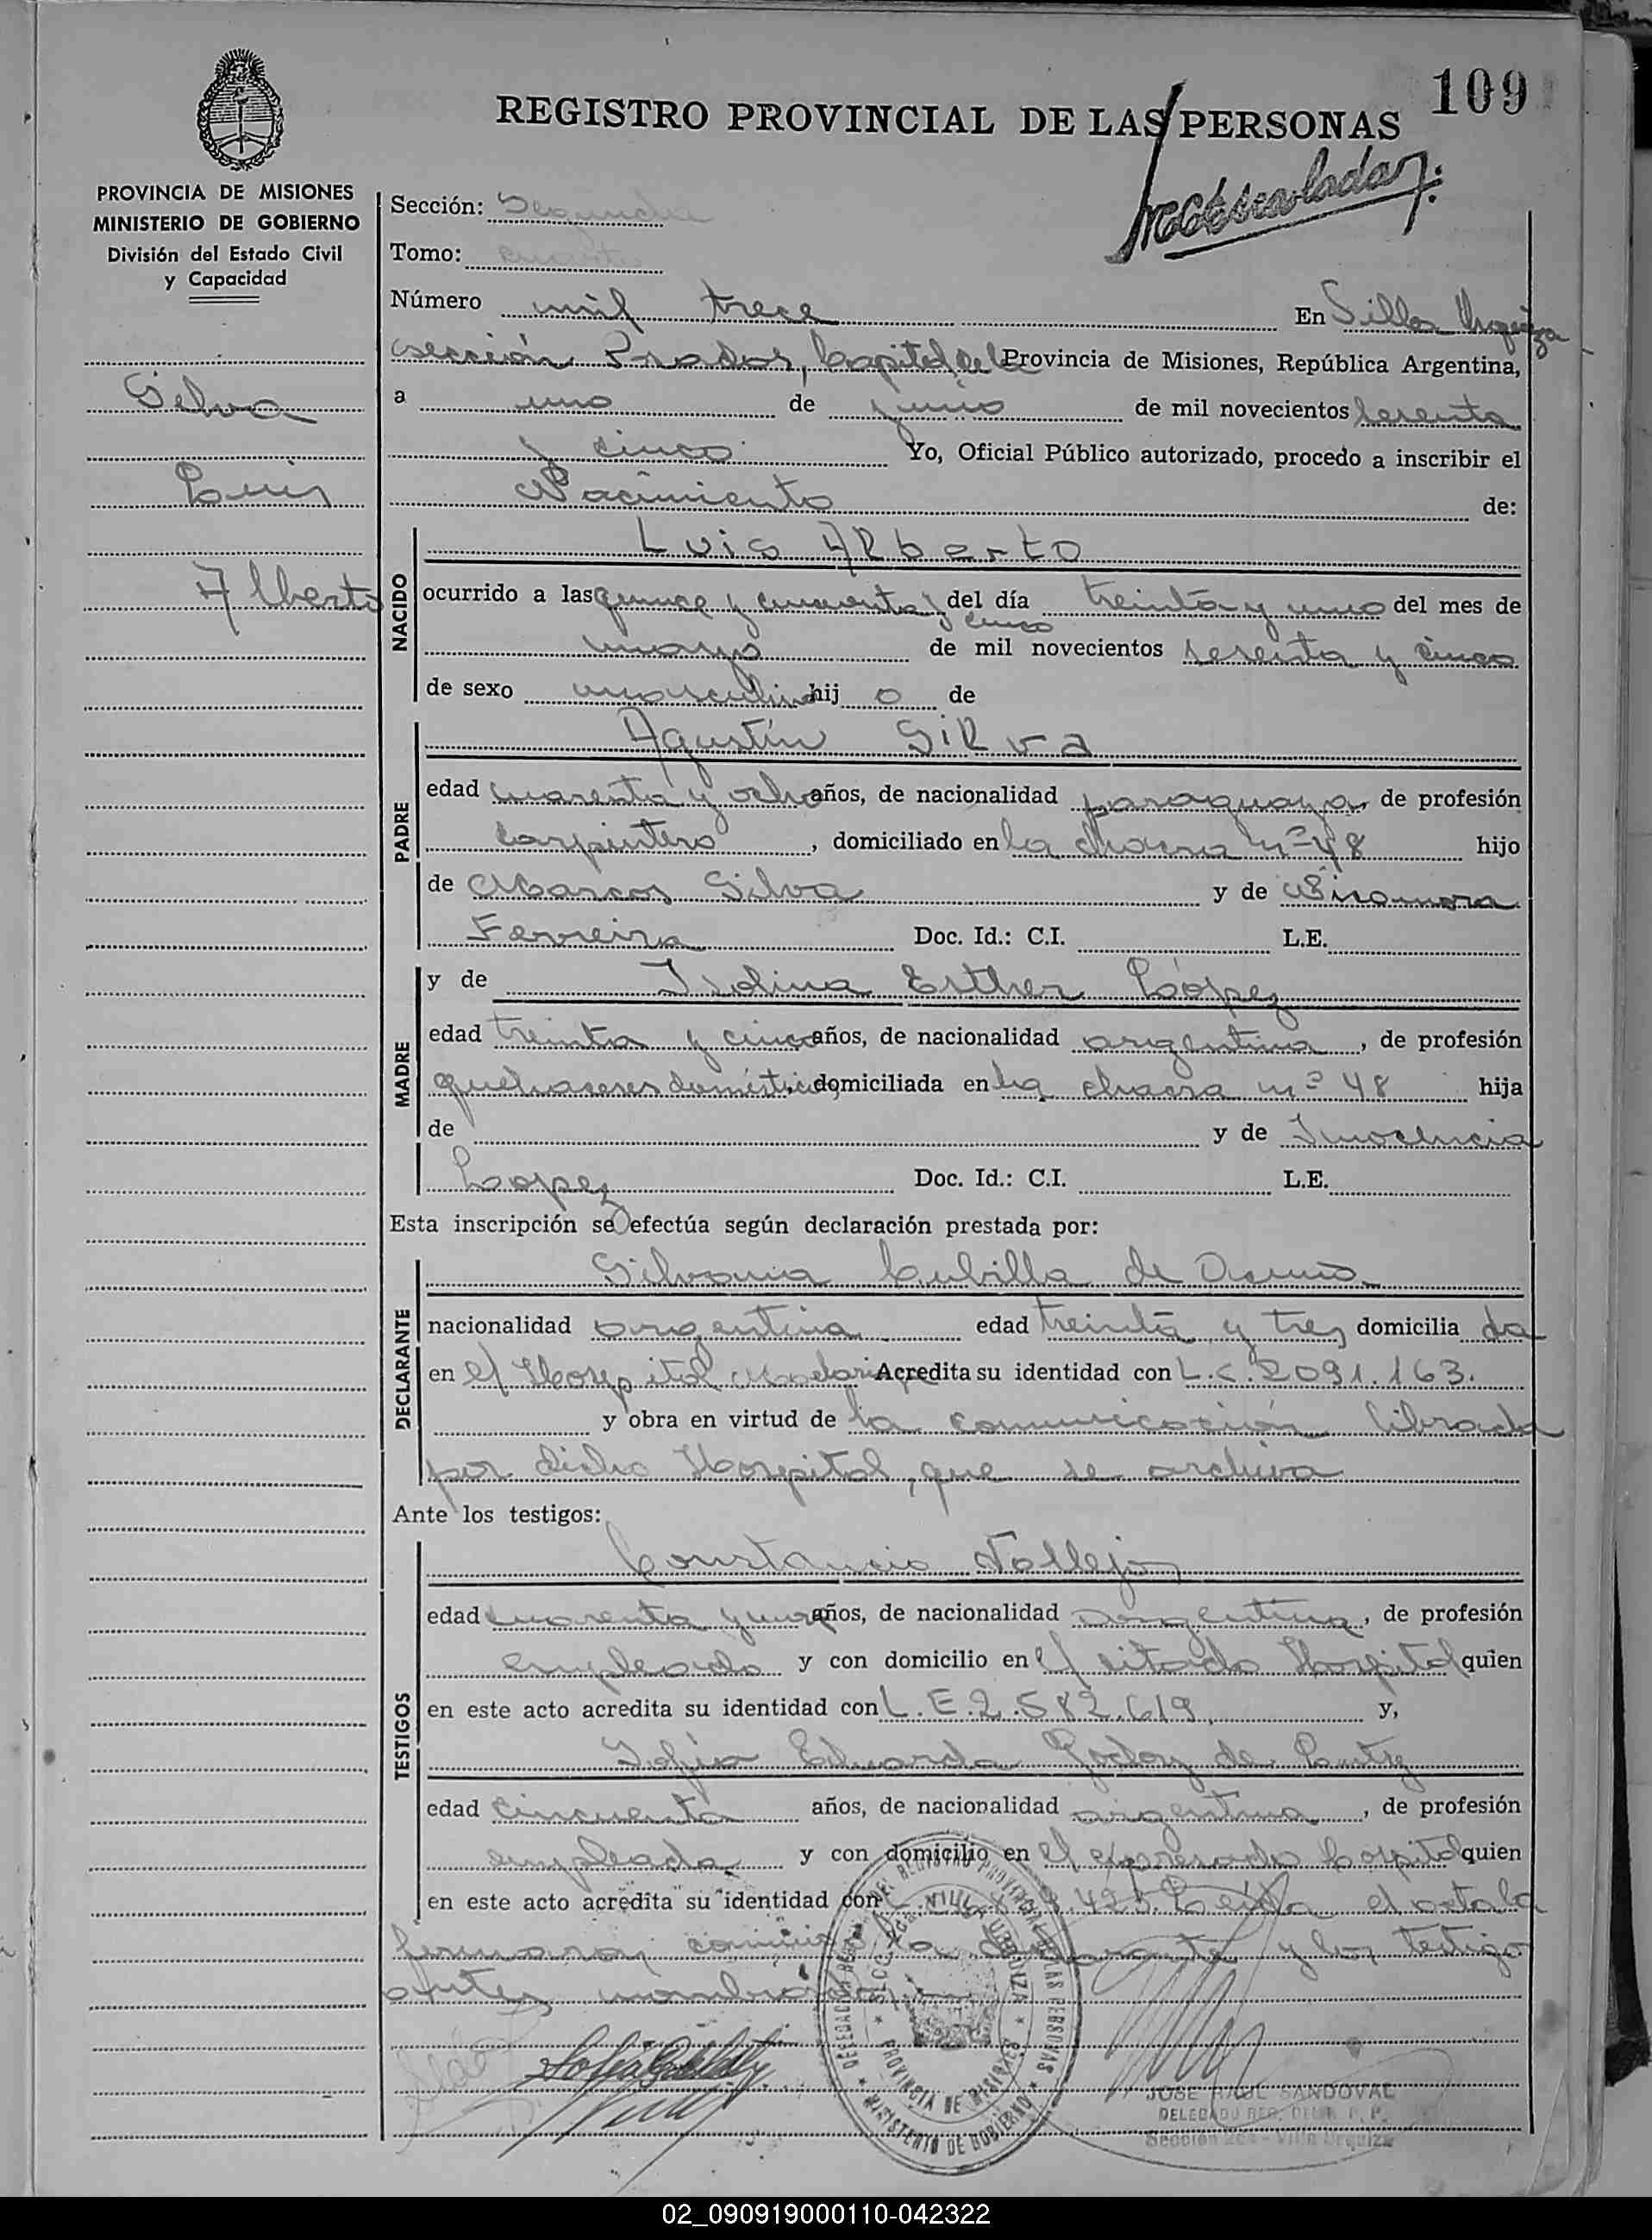 109
REGISTRO PROVINCIAL DE LAS PERSONAS
PROVINCIA DE MISIONES
MINISTERIO DE GOBIERNO
División del Estado Civil
y Capacidad
Silva
Luis
Alberto
Sección: Segunda
Tomo:
Número mil trece En Villa Urquiza
sección Posadas, Capital de la Provincia de Misiones, República Argentina,
a uno de junio de mil novecientos sesenta
y cinco Yo, Oficial Público autorizado, procedo a inscribir el
Nacimiento de:
NACIDO
Luis Alberto
ocurrido a las quince y cuarenta y cinco del día treinta y uno del mes de
mayo de mil novecientos sesenta y cinco
de sexo masculino hijo de
PADRE
Agustín Silva
edad cuarenta y ocho años, de nacionalidad paraguaya, de profesión
carpintero, domiciliado en la chacra nº 48 hijo
de Marcos Silva y de
Ferreira Doc. Id.: C.I. L.E.
MADRE
y de Isolina Esther López
edad treinta y cinco años, de nacionalidad argentina, de profesión
quehaceres domésticos domiciliada en la chacra nº 48 hija
de y de Inocencia
López Doc. Id.: C.I. L.E.
Esta inscripción se efectúa según declaración prestada por:
DECLARANTE
Silvania Cubilla de
nacionalidad argentina edad treinta y tres, domiciliada
en el Hospital Madariaga Acredita su identidad con L.C. 2091.163.
y obra en virtud de la comunicación librada
por dicho Hospital, que se archiva
Ante los testigos:
TESTIGOS
Constancio Vallejos
edad cuarenta y un años, de nacionalidad argentina, de profesión
empleado y con domicilio en el citado Hospital quien
en este acto acredita su identidad con L.E. 2.582.619 y,
Sofía Eduarda Godoy de
edad cincuenta años, de nacionalidad argentina, de profesión
empleada y con domicilio en el expresado hospital quien
en este acto acredita su identidad con Leída el acta la
firmaron conmigo la declarante y los testigos
antes nombrados
DELEGACION REGISTRO PROVINCIAL DE LAS PERSONAS
VILLA URQUIZA
PROVINCIA DE MISIONES
MINISTERIO DE GOBIERNO
JOSE RAUL SANDOVAL
DELEGADO REG. DEL R. P. P.
Sección 2da - Villa Urquiza
02_090919000110-042322